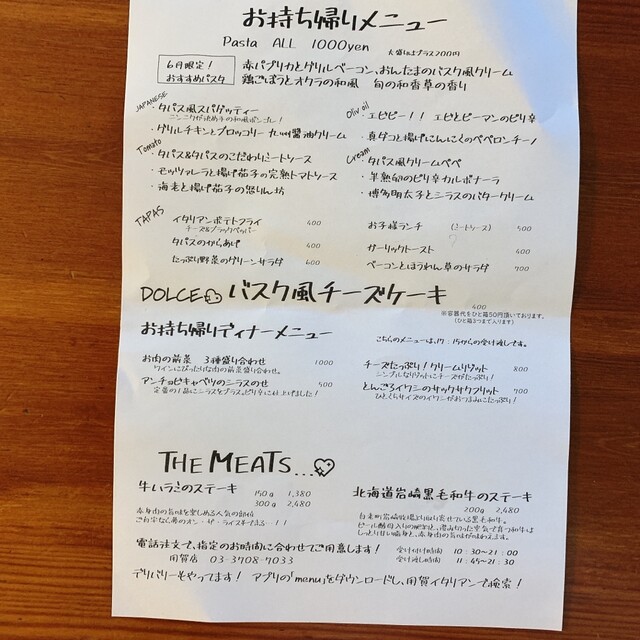 お持ち帰りメニュー
Pasta ALL 1000yen 大盛りはプラス200円
6月限定!
おすすめパスタ
赤パプリカとグリルベーコン、おんたまのバスク風クリーム
鶏ごぼうとオクラの和風 旬の和香草の香り
JAPANESE
・タパス風スパゲッティー
ニンニクが決め手の和風ボンゴレ!
・グリルチキンとブロッコリー 九州醤油クリーム
Oliv oil
・エビビー!! エビとピーマンのピリ辛
・真ダコと揚げにんにくのペペロンチーノ
Tomato
・タパス&タパスのこだわりミートソース
・モッツァレラと揚げ茄子の完熟トマトソース
・海老と揚げ茄子の怒りん坊
Cream
・タパス風クリームペペ
・半熟卵のピリ辛カルボナーラ
・博多明太子とシラスのバタークリーム
TAPAS
イタリアンポテトフライ 400
チーズ&ブラックペッパー
タパスのからあげ 400
たっぷり野菜のグリーンサラダ 600
お子様ランチ (ミートソース) 500
ガーリックトースト 400
ベーコンとほうれん草のサラダ 700
DOLCE バスク風チーズケーキ 400
※容器代をひと箱50円頂いております。
(ひと箱2つまで入ります)
お持ち帰りディナーメニュー
こちらのメニューは、17:15からの受け渡しです。
お肉の前菜 3種盛り合わせ 1000
ワインにぴったりな肉の前菜盛り合わせ。
アンチョビキャベツのシラスのせ 500
定番の1品にシラスをプラス。ピリ辛に仕上げました!
チーズたっぷり!クリームリゾット 800
シンプルなリゾットにチーズがたっぷり!
とんごろイワシのサックサクフリット 700
ひとくちサイズのイワシがおつまみにたっぷり!
THE MEATS...
牛ハラミのステーキ 150g 1,380
300g 2,480
赤身肉の旨味を楽しめる人気の部位
ご自宅なら夢のオン・ザ・ライスもできる‥!!
北海道岩崎黒毛和牛のステーキ
200g 2,480
白老町岩崎牧場より取り寄せている黒毛和牛。
ビール酵母入りの肥料と、澄み切った空気で育つ和牛は
しっとり甘い脂と、赤身肉の旨味が味わえます。
電話注文で、指定のお時間に合わせてご用意します!
用賀店 03-3708-7033
受け付け時間 10:30~21:00
受け渡し時間 11:45~21:30
デリバリーもやってます! アプリの「menu」をダウンロードし、用賀イタリアンで検索!